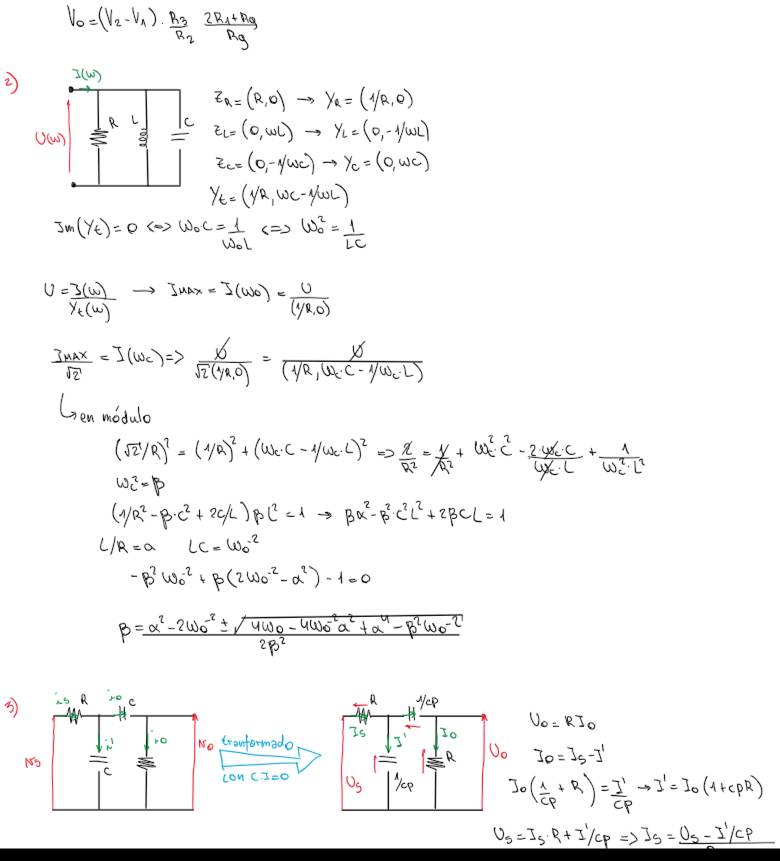 Vo=(V2-V1)·R3/R2 (2R1+Rg)/Rg
2)
I(w)
U(w)
R
L
C
ZR=(R,0) → YR=(1/R,0)
ZL=(0,wL) → YL=(0,-1/wL)
Zc=(0,-1/wc) → Yc=(0,wc)
Yt=(1/R,wc-1/wL)
Im(Yt)=0 <=> woC=1/woL <=> wo²=1/LC
U=I(w)/Yt(w) → IMAX=I(wo)=U/(1/R,0)
IMAX/√2=I(wc)=> U/√2(1/R,0) = U/(1/R,wc·C-1/wc·L)
↳ en módulo
(√2/R)²=(1/R)²+(wc·C-1/wc·L)² => 2/R²=1/R²+wc²·C²-2·wc·C/wc·L+1/wc²·L²
wc²=β
(1/R²-β·C²+2C/L)βL²=1 → βα²-β²·C²L²+2βCL=1
L/R=α LC=wo⁻²
-β²wo⁻²+β(2wo⁻²-α²)-1=0
β=α²-2wo⁻²±√4wo-4wo⁻²α²+α⁴-β²wo⁻²/2β²
3)
is R io C
i' io
Ns
C
No
tranformado
con CI=0
R 1/cp
Is
I' Io
Us
1/cp
R
Uo
Uo=RIo
Io=Is-I'
Io(1/cp+R)=I'/cp → I'=Io(1+cpR)
Us=Is·R+I'/cp => Is=Us-I'/cp